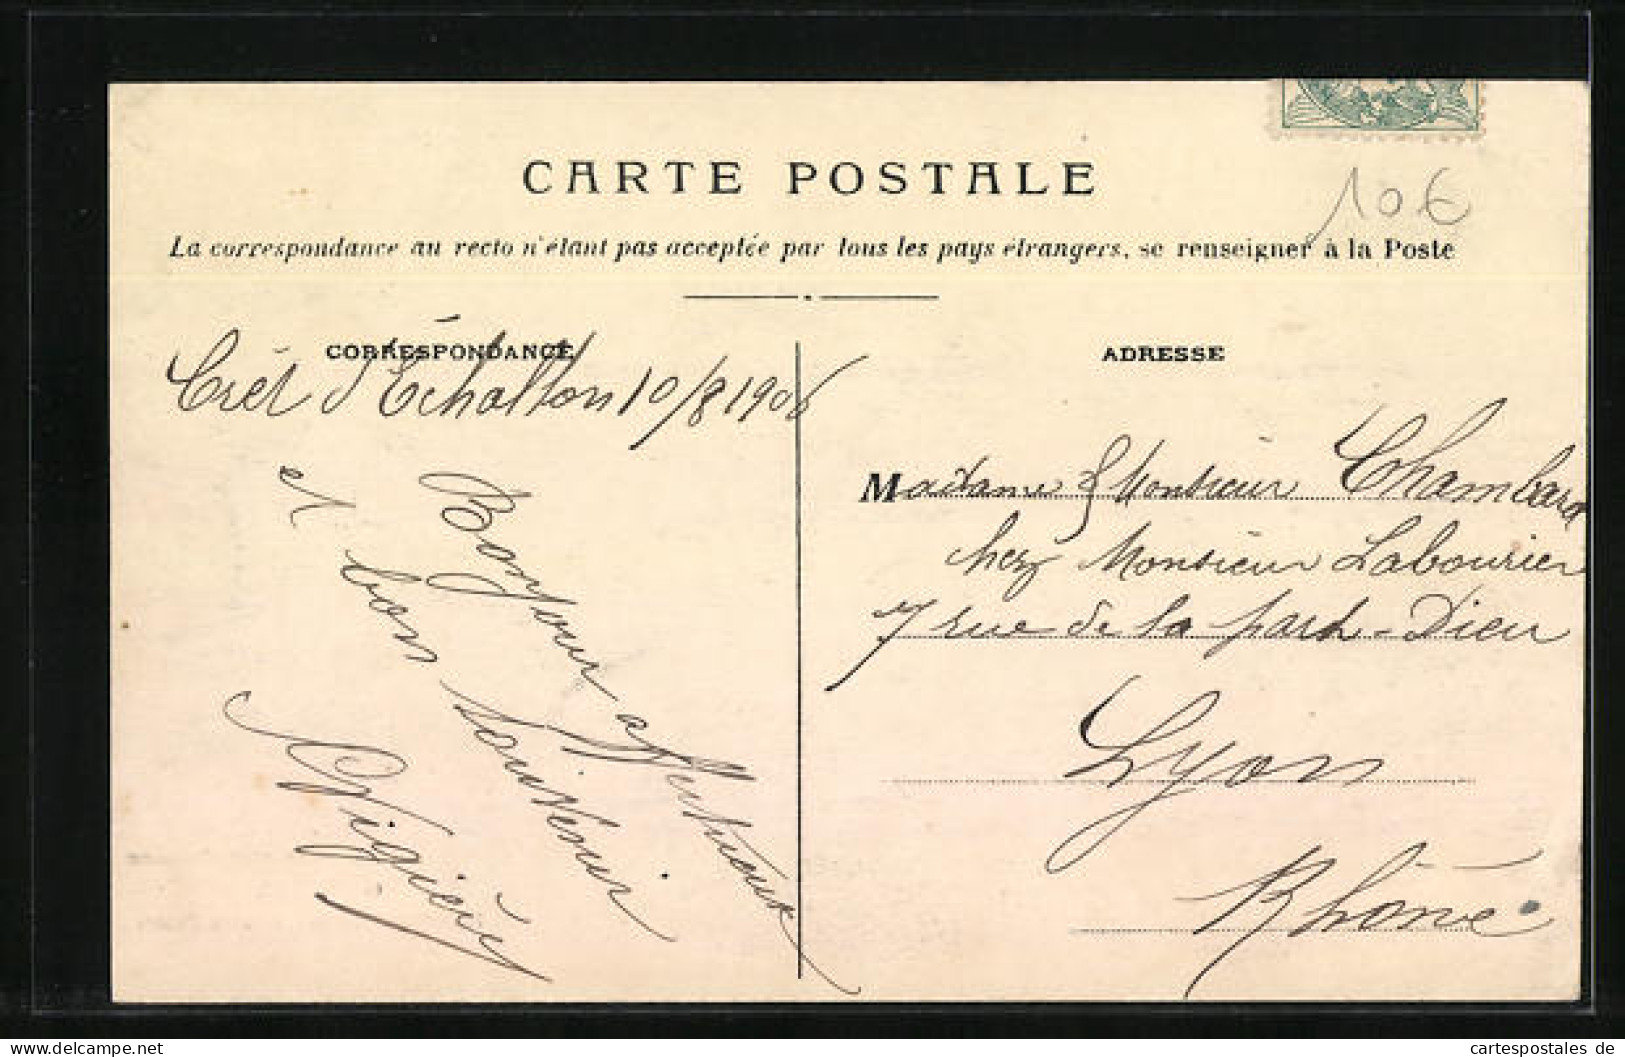 CARTE POSTALE
10€
La correspondance au recto n'étant pas acceptée par tous les pays étrangers, se renseigner à la Poste
CORRESPONDANCE
Crêt d'Échallon 10/8 1906
Bonjour affectueux
et bon souvenir
ADRESSE
Madame & Monsieur Chambard
chez Monsieur Labourier
7 rue de la part-Dieu
Lyon
Rhône
www.delcampe.net
cartespostales de